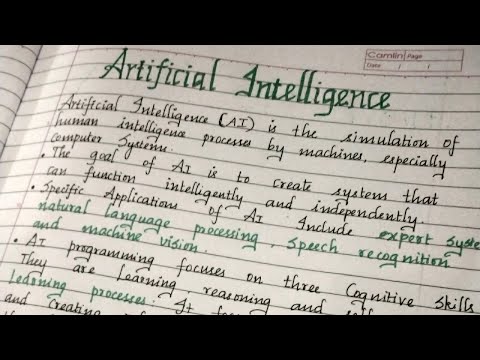 Camlin Page
Date / /
Artificial Intelligence
Artificial Intelligence (AI) is the simulation of
human intelligence processes by machines, especially
computer Systems.
• The goal of AI is to create system that
can function intelligently and independently.
• Specific Applications of AI Include expert syste
natural language processing, speech recognition
and machine vision
• AI programming focuses on three Cognitive Skills
They are learning, reasoning and
Learning processes: It
and creating